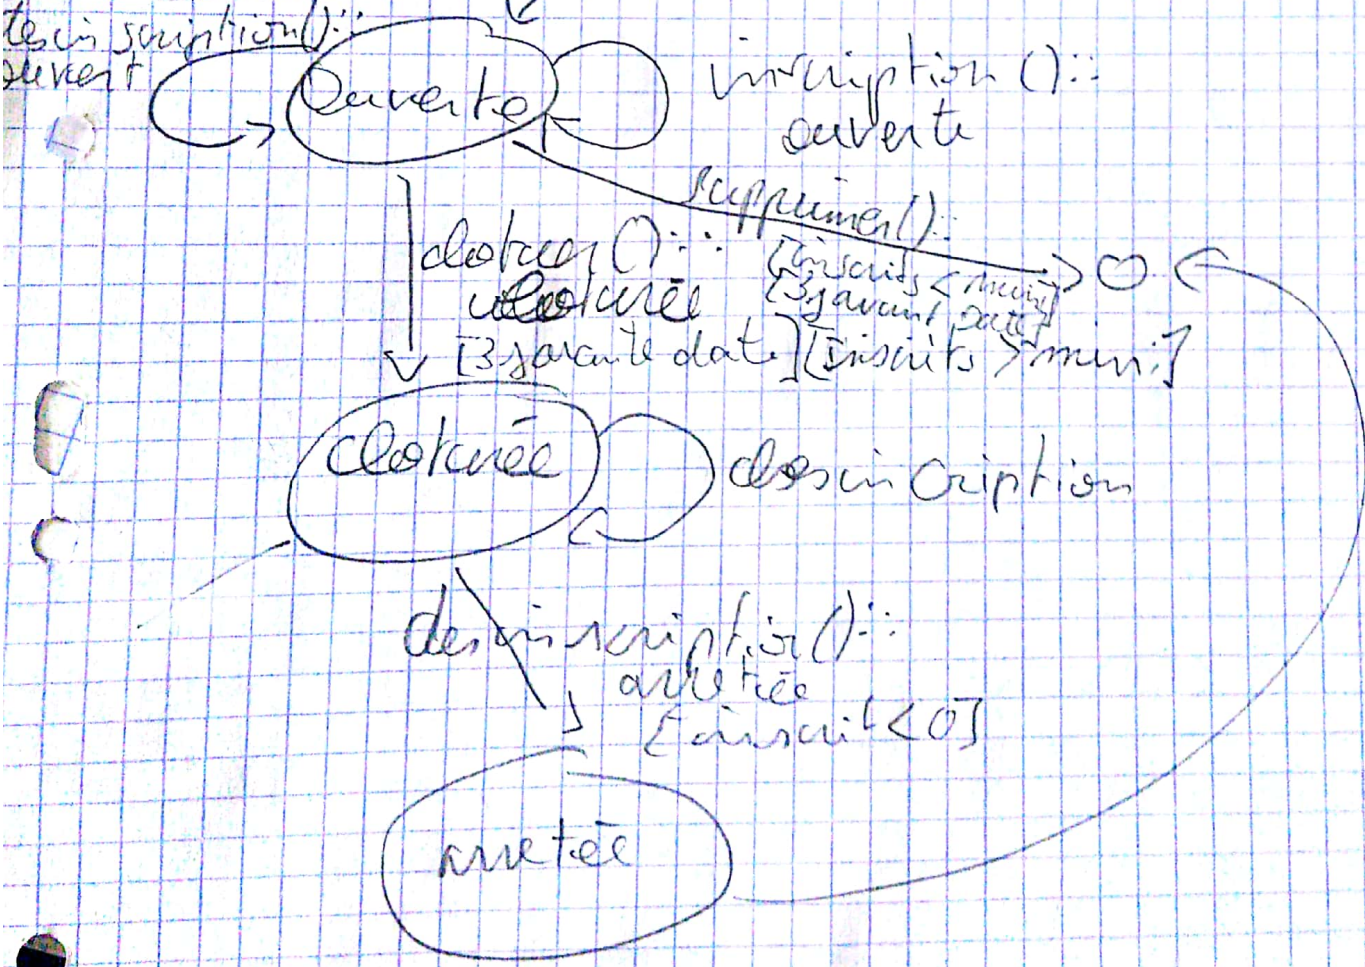 desinscription()::
ouvert
Ouverte
inscription()::
ouverte
supprimer()::
[inscrits < mini]
[3j avant Date]
cloturer()::
cloturée
[3j avant date] [inscrits > mini]
cloturée
desincription
desinscription()::
arretée
[inscrit < 0]
arretée